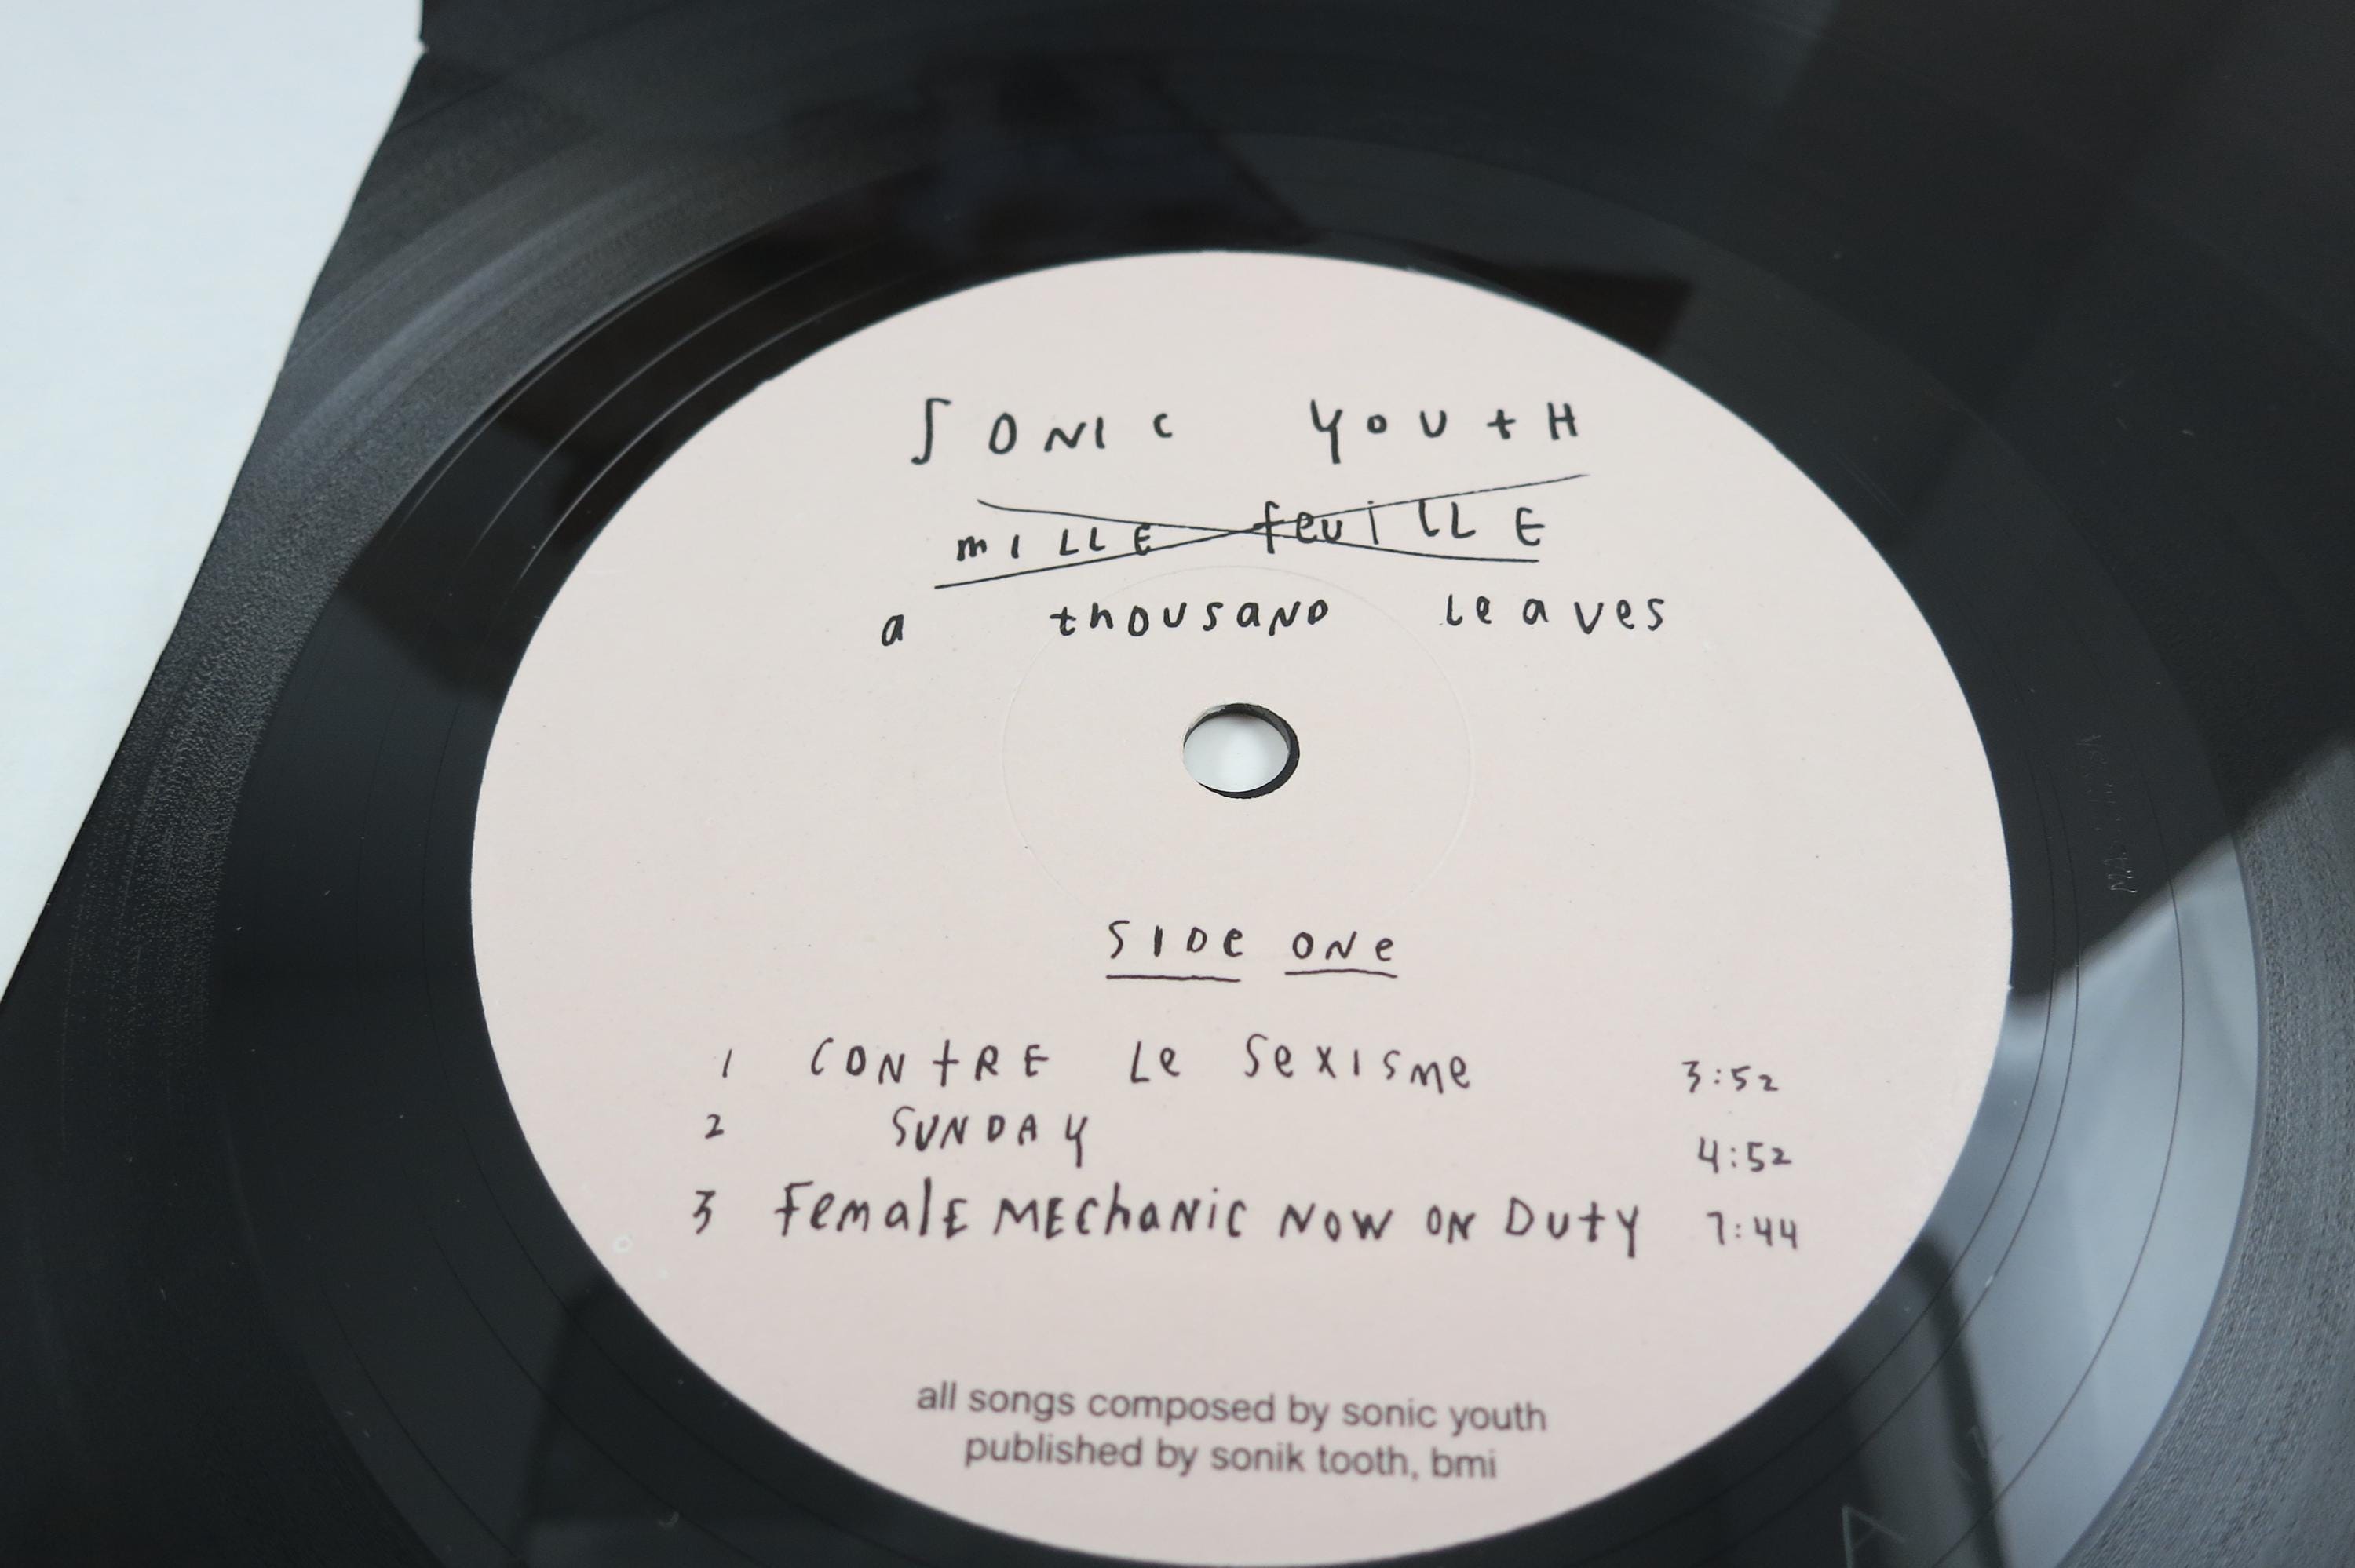 SONIC YOUtH
mILLE feuiLLE
a thousaND leaves
SIDe ONe
1 CONtRE Le SexISme 3:52
2 SUNDAY 4:52
3 FemalE MEChaNiC NOW ON DutY 7:44
all songs composed by sonic youth
published by sonik tooth, bmi